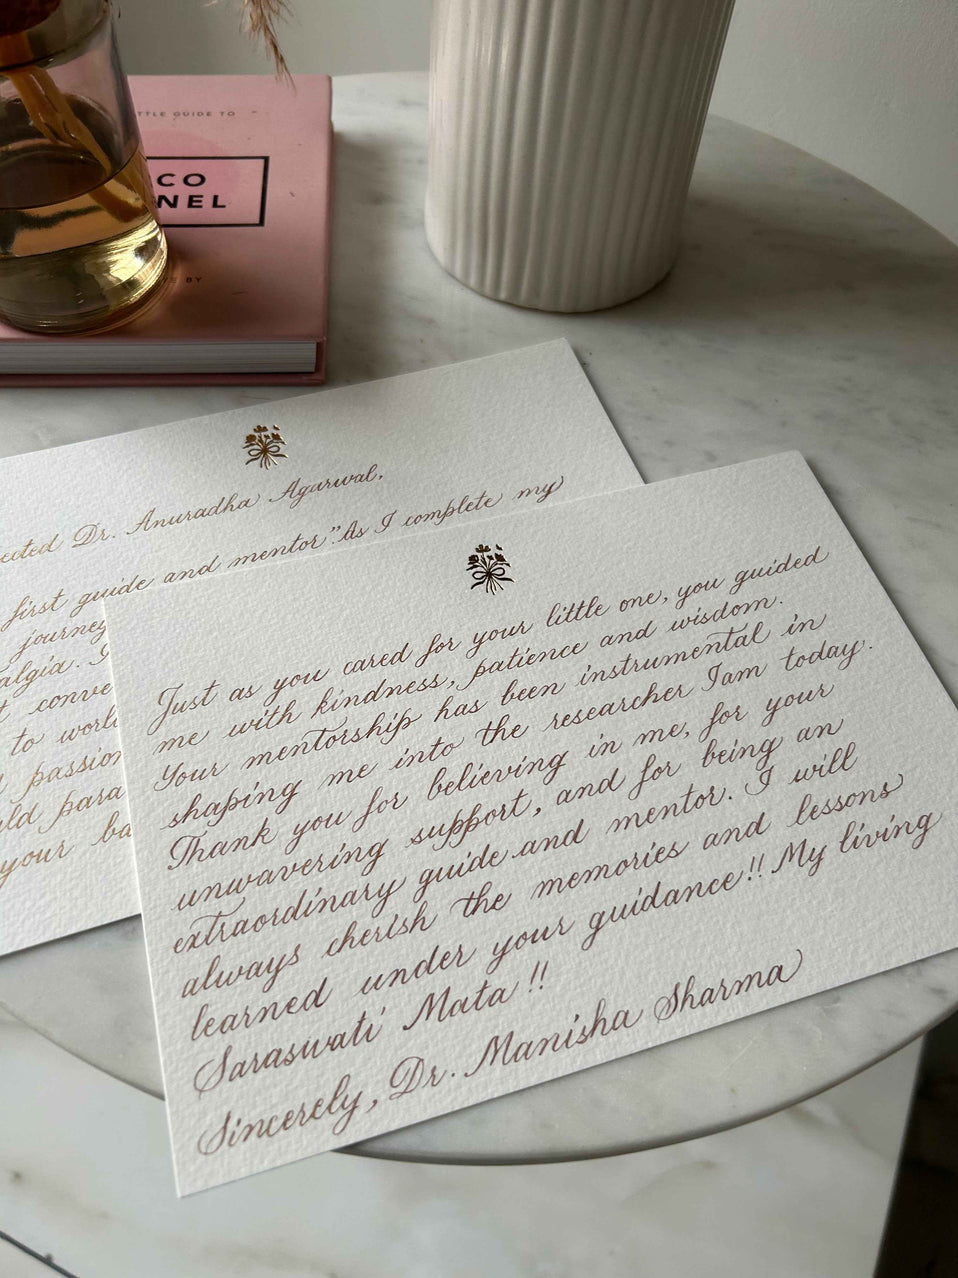 TTLE GUIDE TO
CO
NEL
BY
ected Dr. Anuradha Agarwal,
first guide and mentor". As I complete my
journey
algia. I
t conve
to worl
passion
ld para
your ba
Just as you cared for your little one, you guided
me with kindness, patience and wisdom.
Your mentorship has been instrumental in
shaping me into the researcher I am today.
Thank you for believing in me, for your
unwavering support, and for being an
extraordinary guide and mentor. I will
always cherish the memories and lessons
learned under your guidance!! My living
Saraswati Mata!!
Sincerely, Dr. Manisha Sharma